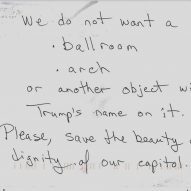 We do not want a
· ballroom
· arch
or another object wi
Trump's name on it.
Please, save the beauty
dignity of our capitol.